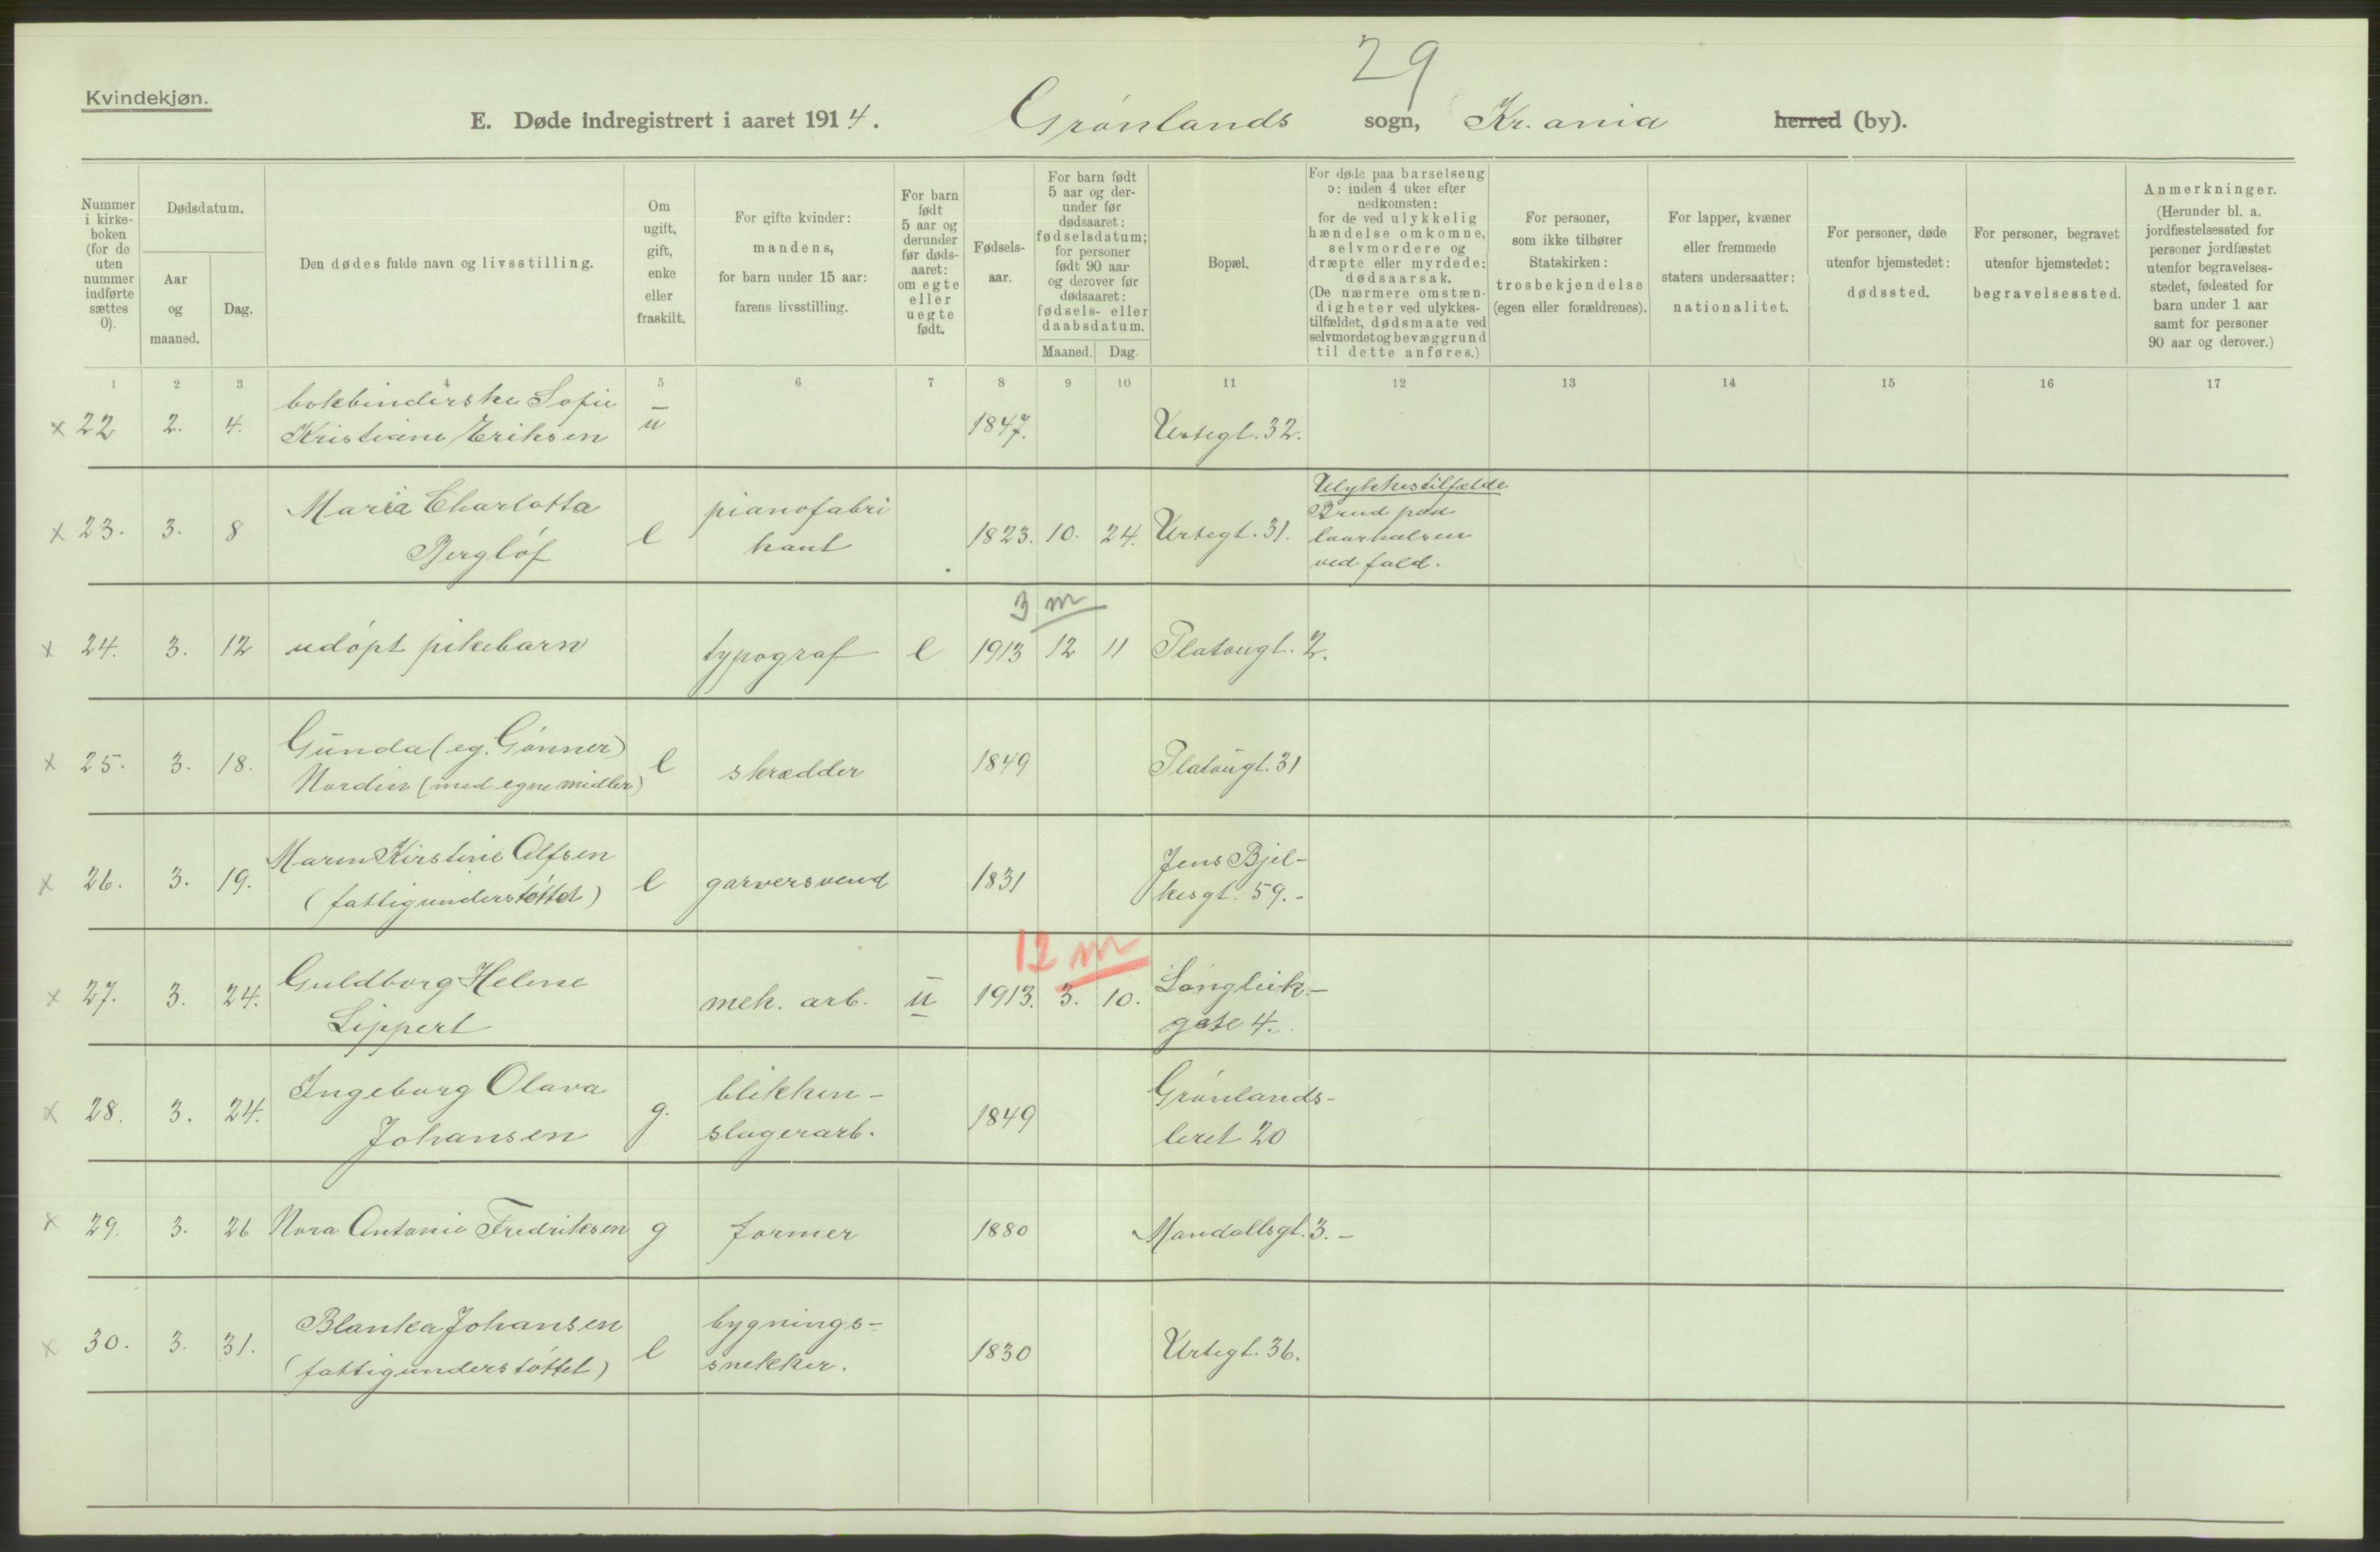 29
Kvindekjøn.
E. Døde indregistrert i aaret 1914. Grønlands sogn, Kr.ania herred (by).
Nummer i kirkeboken (for de uten nummer indførte sættes 0).
Dødsdatum.
Aar og maaned.
Dag.
Den dødes fulde navn og livsstilling.
Om ugift, gift, enke eller fraskilt.
For gifte kvinder: mandens, for barn under 15 aar: farens livsstilling.
For barn født 5 aar og derunder før dødsaaret: om egte eller uegte født.
Fødselsaar.
For barn født 5 aar og derunder før dødsaaret: fødselsdatum; for personer født 90 aar og derover før dødsaaret: fødsels- eller daabsdatum.
Maaned. Dag.
Bopæl.
For døde paa barselseng ɔ: inden 4 uker efter nedkomsten: for de ved ulykkelig hændelse omkomne, selvmordere og dræpte eller myrdede: dødsaarsak. (De nærmere omstændigheter ved ulykkestilfældet, dødsmaate ved selvmordet og bevæggrund til dette anføres.)
For personer, som ikke tilhører Statskirken: trosbekjendelse (egen eller forældrenes).
For lapper, kvæner eller fremmede staters undersaatter: nationalitet.
For personer, døde utenfor hjemstedet: dødssted.
For personer, begravet utenfor hjemstedet: begravelsessted.
Anmerkninger. (Herunder bl. a. jordfæstelsessted for personer jordfæstet utenfor begravelsesstedet, fødested for barn under 1 aar samt for personer 90 aar og derover.)
1 2 3 4 5 6 7 8 9 10 11 12 13 14 15 16 17
x 22 2. 4. bokbinderske Sofie Kristiane Eriksen u 1847. Urtegt. 32.
x 23. 3. 8 Maria Charlotta Berglöf e pianofabrikant 1823. 10. 24. Urtegt. 31. Ulykkestilfælde Brud paa laarhalsen ved fald.
3 m
x 24. 3. 12 udøpt pikebarn typograf e 1913 12 11 Platougt. 2.
x 25. 3. 18. Gunda (eg. Gønner) Nordin (med egne midler) e skrædder 1849 Platougt. 31
x 26. 3. 19. Maren Kirstine Alfsen (fattigunderstøttet) e garversvend 1831 Jens Bjelkesgt. 59.-
12 m
x 27. 3. 24. Guldborg Helene Lippert mek. arb. u 1913. 3. 10. Langleikgate 4.
x 28. 3. 24. Ingeborg Olava Johansen g. blikkenslagerarb. 1849 Grønlandsleret 20
x 29. 3. 26 Nora Antonie Fredriksen g former 1880 Mandallsgt. 3.-
x 30. 3. 31. Blanka Johansen (fattigunderstøttet) e bygningssnekker. 1830 Urtegt. 36.